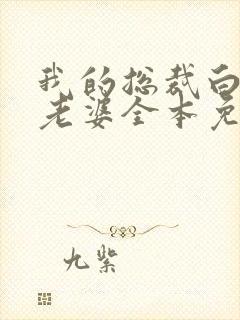 我的总裁白
老婆全本免
九紫